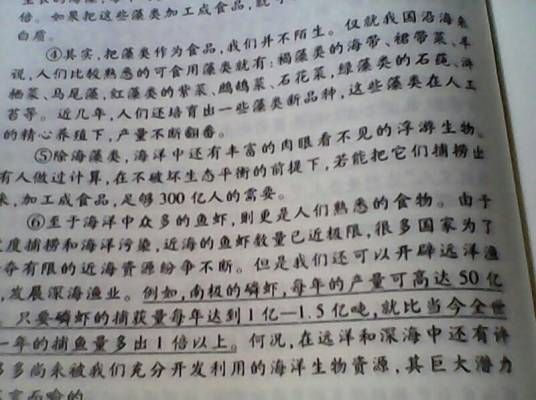 倍。如果把这些藻类加工成食品,
白质。
④其实,把藻类作为食品,我们并不陌生。仅就我国沿海来
说,人们比较熟悉的可食用藻类就有:褐藻类的海带、裙带菜、羊
栖菜、马尾藻,红藻类的紫菜、鹧鸪菜、石花菜,绿藻类的石莼、浒
苔等。近几年,人们还培育出一些藻类新品种,这些藻类在人工
的精心养殖下,产量不断翻番。
⑤除海藻类,海洋中还有丰富的肉眼看不见的浮游生物。
有人做过计算,在不破坏生态平衡的前提下,若能把它们捕捞出
来,加工成食品,足够300亿人的需要。
⑥至于海洋中众多的鱼虾,则更是人们熟悉的食物。由于
度捕捞和海洋污染,近海的鱼虾数量已近极限,很多国家为了
夺有限的近海资源纷争不断。但是我们还可以开辟远洋渔
,发展深海渔业。例如,南极的磷虾,每年的产量可高达50亿
只要磷虾的捕获量每年达到1亿—1.5亿吨,就比当今全世
一年的捕鱼量多出1倍以上。何况,在远洋和深海中还有许
多多尚未被我们充分开发利用的海洋生物资源,其巨大潜力
言而喻的